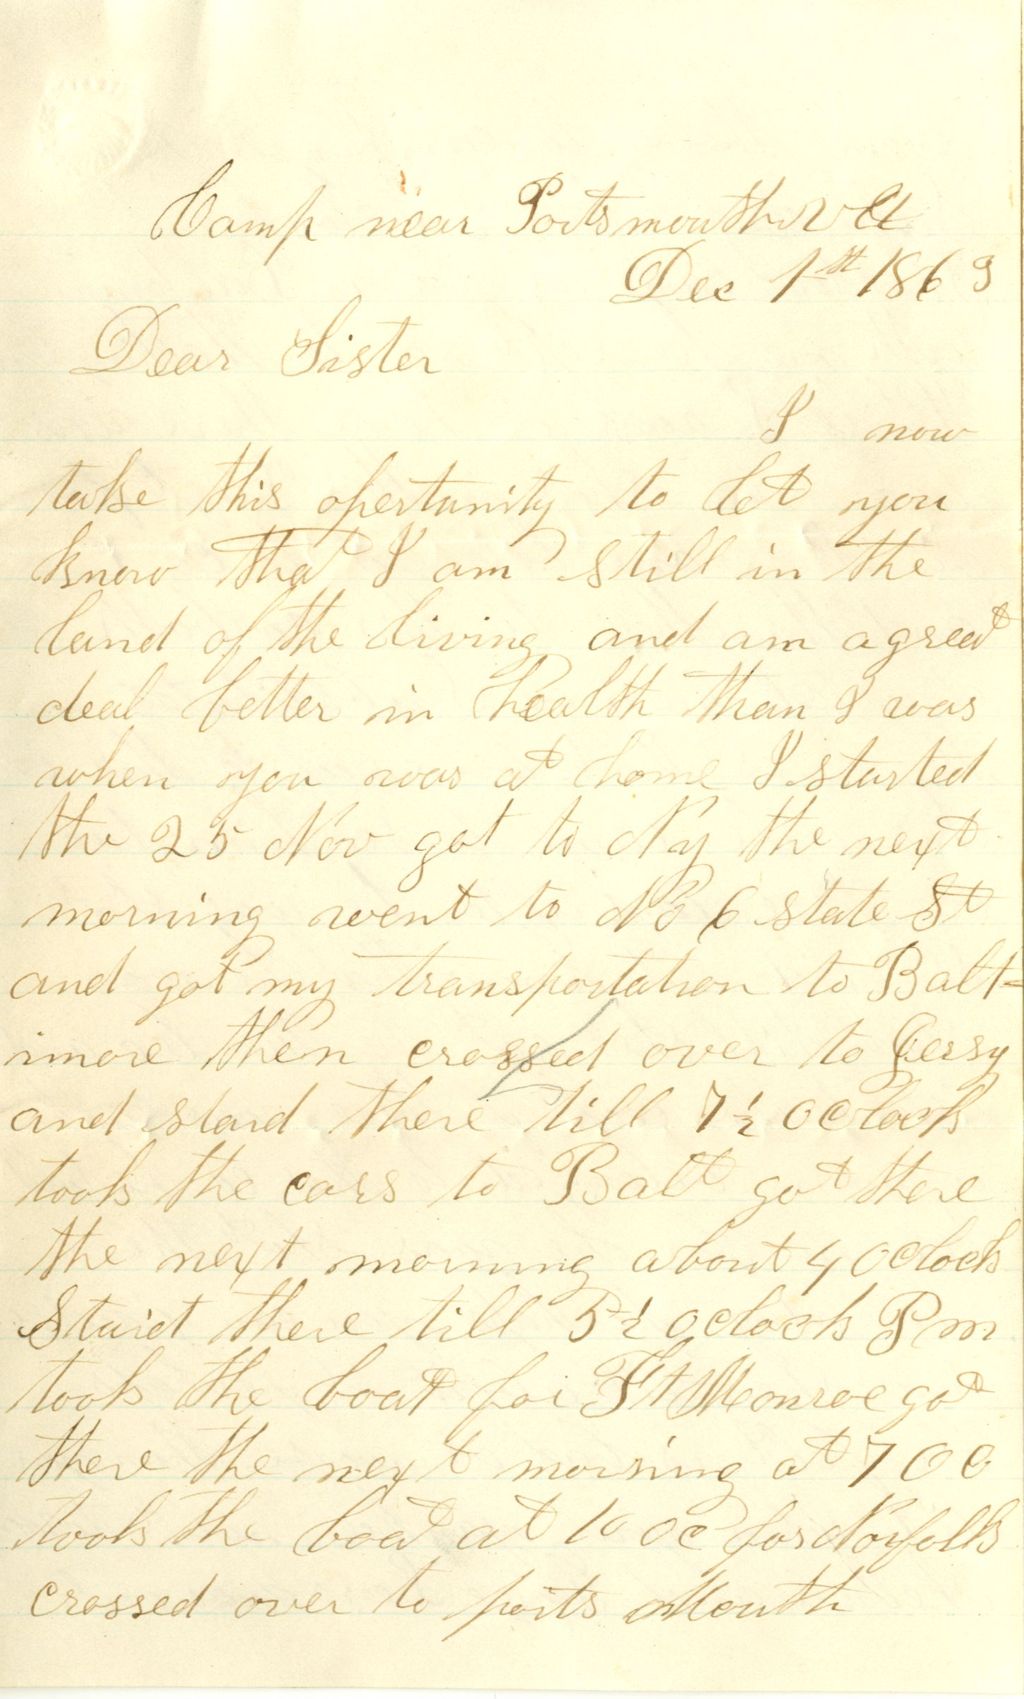 Camp near Portsmouth Va
Dec 1st 1863
Dear Sister
I now
take this opertunity to let you
know that I am still in the
land of the living and am a great
deal better in health than I was
when you was at home I started
the 25 Nov got to Ny the next
morning went to No 6 state St
and got my transportation to Balt-
imore then crossed over to Jersy
and staid there till 7½ oclock
took the cars to Balt got there
the next morning about 4 oclock
Staid there till 5½ oclock Pm
took the boat for Ft Monroe got
there the next morning at 7 OC
took the boat at 10 oc for Norfolk
crossed over to ports Mouth